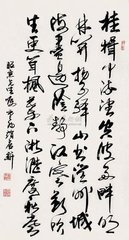 桂楫中流望空波兩畔明
林開揚子驛山出潤州城
海盡邊陰靜江寒朔吹
生更聞楓葉下淅瀝度秋聲